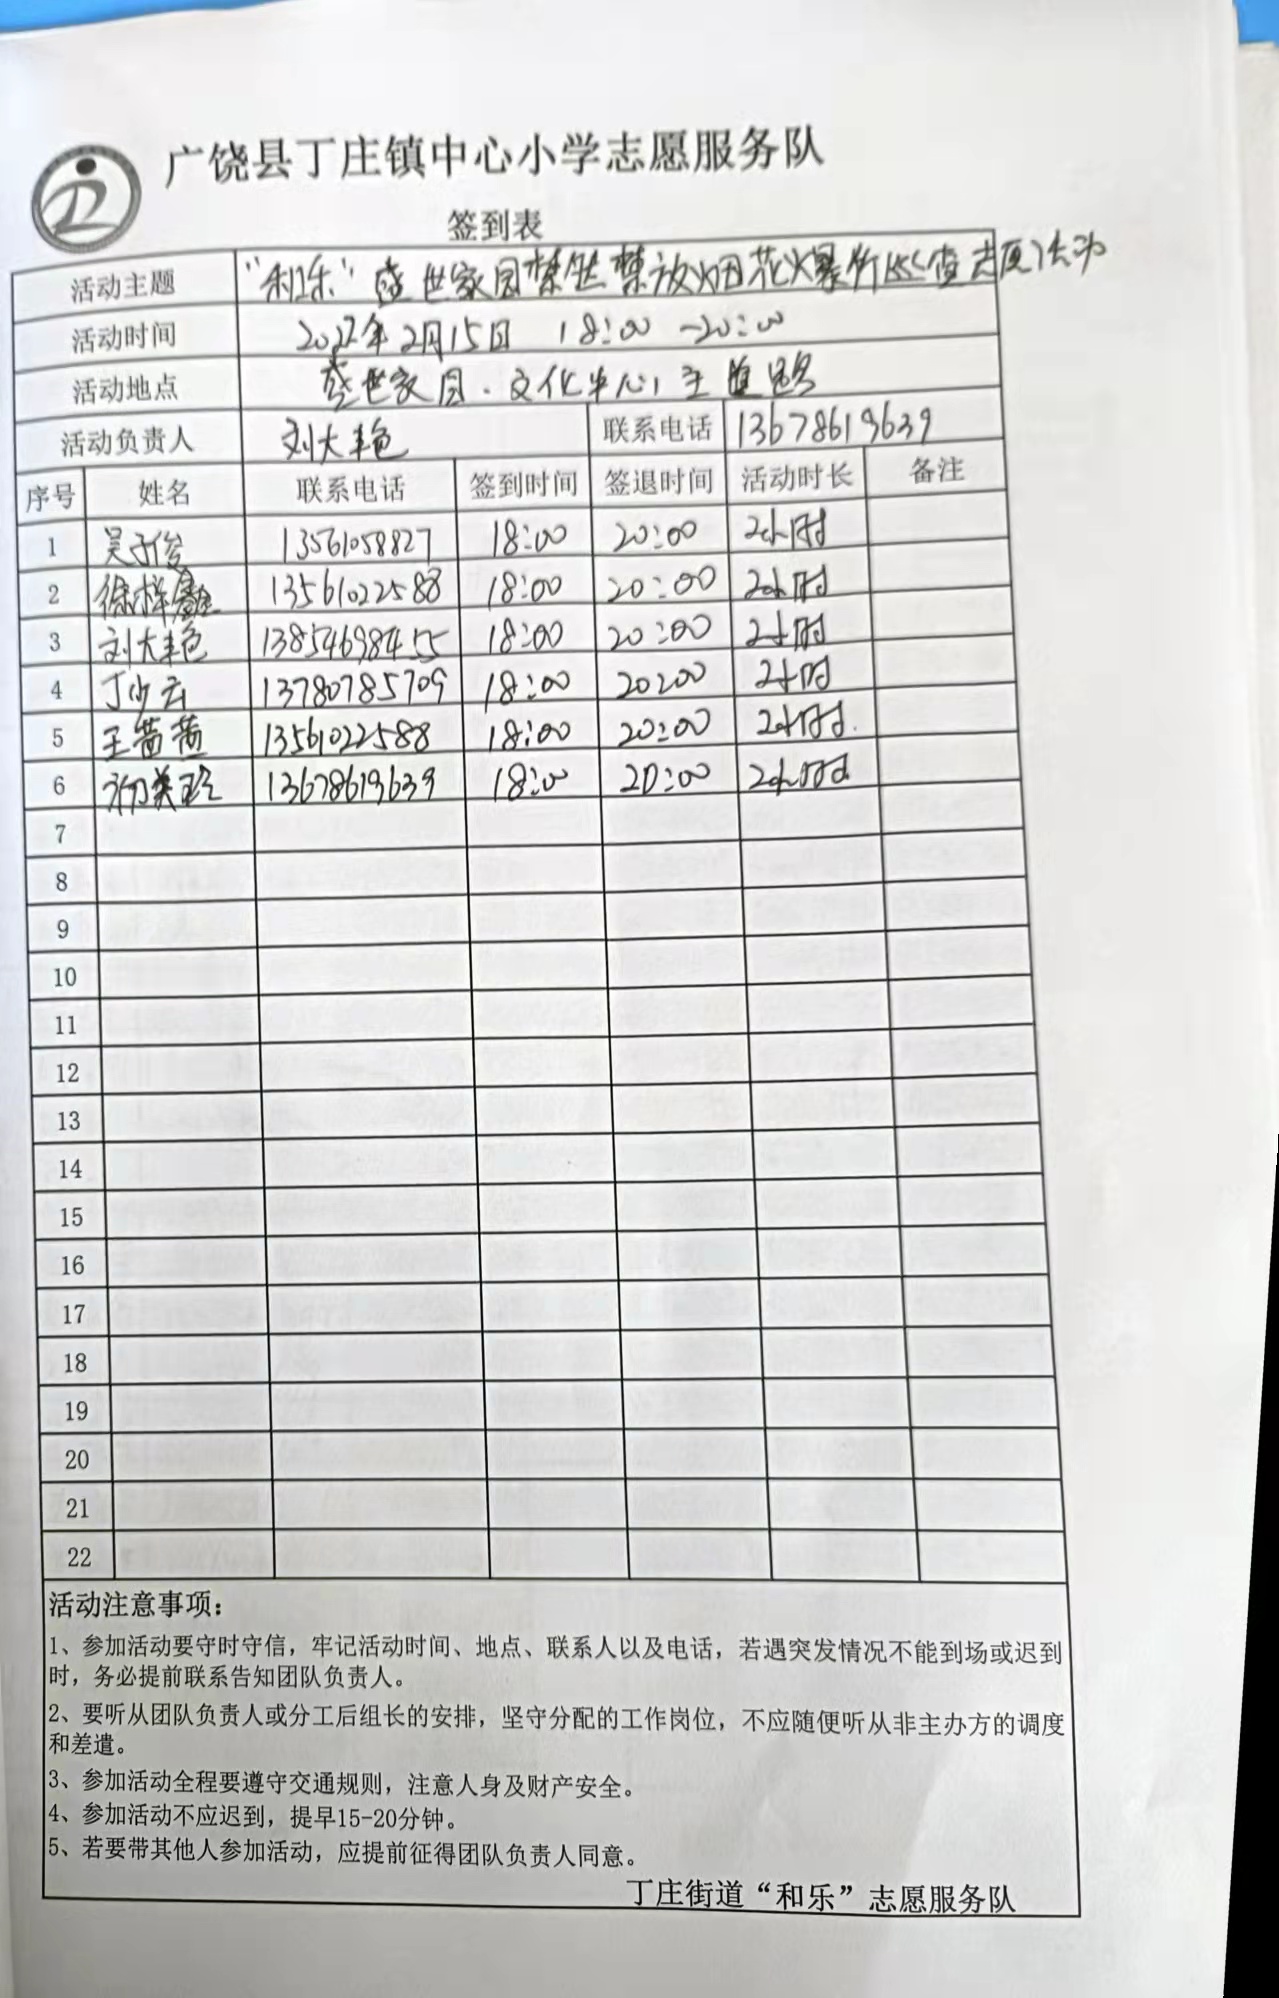 广饶县丁庄镇中心小学志愿服务队
签到表
活动主题 "和乐"盛世家园禁燃禁放烟花火爆竹巡查志愿活动
活动时间 2022年2月15日 18:00-20:00
活动地点 盛世家园.文化中心,主道路
活动负责人 刘大艳 联系电话 13678619639
序号 姓名 联系电话 签到时间 签退时间 活动时长 备注
1 吴子俊 13561058827 18:00 20:00 2小时
2 徐梓 13561022588 18:00 20:00 2小时
3 刘大艳 13854698455 18:00 20:00 2小时
4 丁少云 13780785709 18:00 20:00 2小时
5 王茜茜 13561022588 18:00 20:00 2小时.
6 美玲 13678619639 18:00 20:00 2小时
7
8
9
10
11
12
13
14
15
16
17
18
19
20
21
22
活动注意事项：
1、参加活动要守时守信，牢记活动时间、地点、联系人以及电话，若遇突发情况不能到场或迟到
时，务必提前联系告知团队负责人。
2、要听从团队负责人或分工后组长的安排，坚守分配的工作岗位，不应随便听从非主办方的调度
和差遣。
3、参加活动全程要遵守交通规则，注意人身及财产安全。
4、参加活动不应迟到，提早15-20分钟。
5、若要带其他人参加活动，应提前征得团队负责人同意。
丁庄街道“和乐”志愿服务队